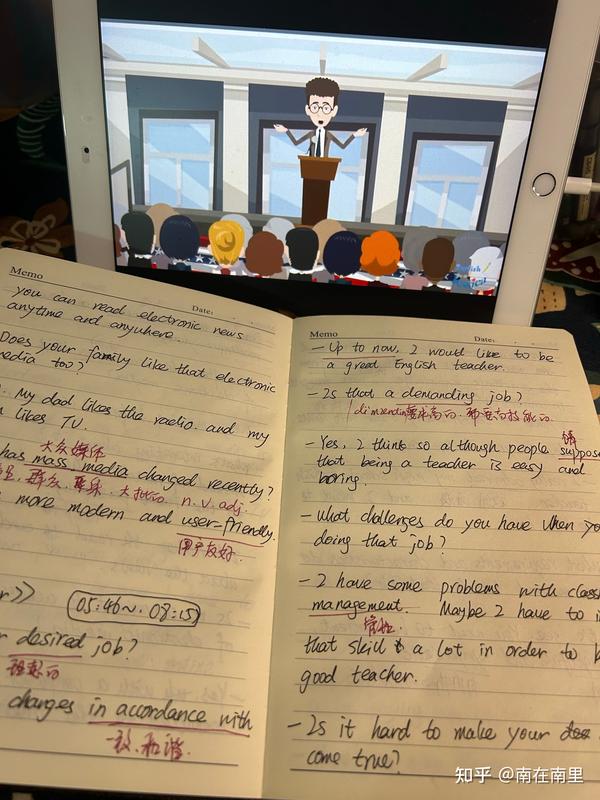 Memo
Date:
you can read electronic news
anytime and anywhere.
Does your family like that electronic
media too?
My dad likes the radio. and my
likes TV.
大众媒体
has mass media changed recently?
群众, 聚集. 大批的 n. v. adj.
more modern and user-friendly.
用户友好.
05:46~08:15
desired job?
理想的
changes in accordance with
一致、和谐.
Memo
Date:
- Up to now, I would like to be
a great English teacher.
- Is that a demanding job?
要求高的.
- Yes, I think so although people suppose
that being a teacher is easy and
boring.
- What challenges do you have when yo
doing that job?
- I have some problems with class
management. Maybe I have to i
管理.
that skill a lot in order to b
good teacher.
- Is it hard to make your
come true?
知乎 @南在南里